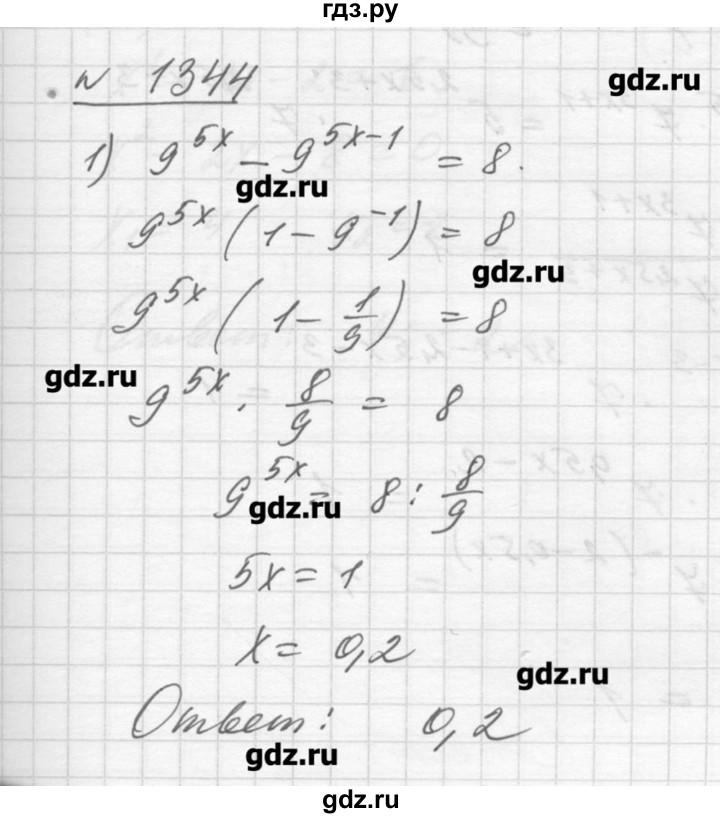 гдз.ру
gdz.ru
№ 1344
1) 9^{5x} - 9^{5x-1} = 8.
gdz.ru
9^{5x} (1 - 9^{-1}) = 8
gdz.ru
9^{5x} (1 - \frac{1}{9}) = 8
gdz.ru
9^{5x} \cdot \frac{8}{9} = 8
9^{5x} = 8 : \frac{8}{9}
gdz.ru
5x = 1
x = 0,2
gdz.ru
Ответ: 0,2
gdz.ru
gdz.ru